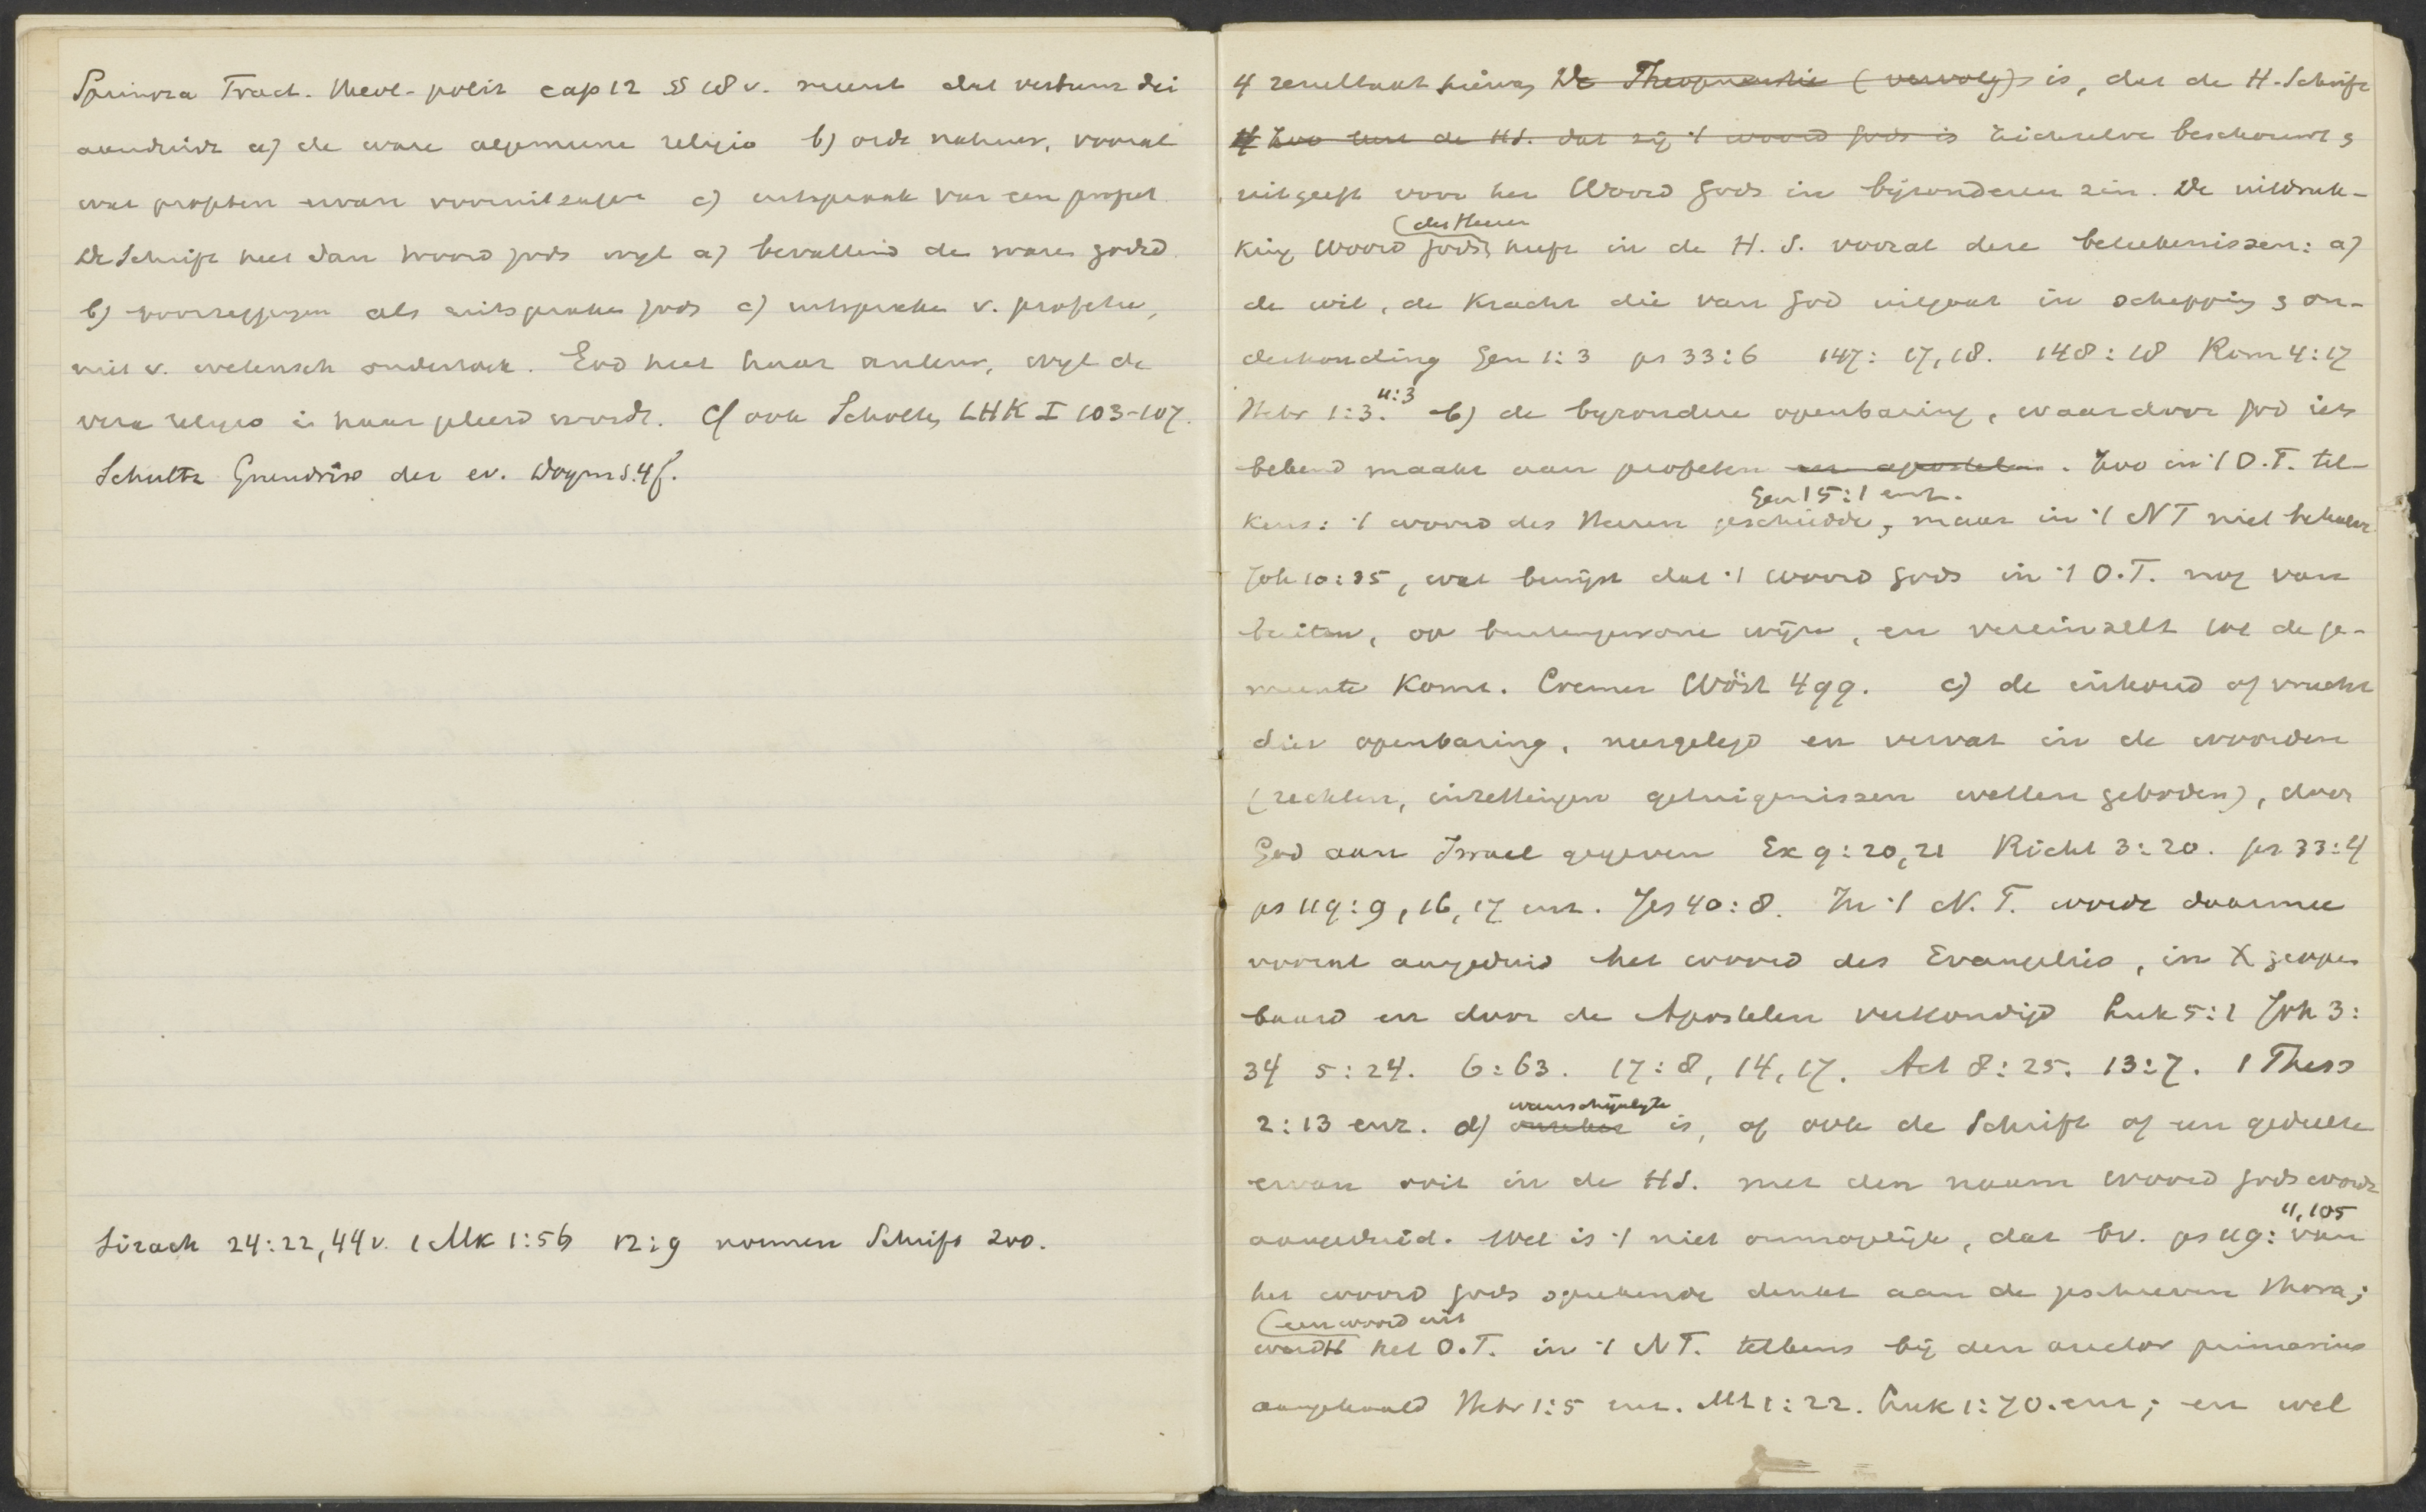 Spinoza Tract. theol-polit cap 12 § 18 v. meent dat verbum dei
aanduidt a) de ware algemeene religio b) orde natuur, vooral
wat profeten ervan vooruitzagen c) uitspraak van een profeet
De Schrift heet dan woord gods wyl a) bevattend de ware godsd.
b) voorzeggingen als uitspraken gods c) uitspraken v. profeten,
niet v. wetensch onderzoek. God heet haar auteur, wyl de
vera religio in haar geleerd wordt. Cf ook Scholten LHK I 103-107.
Schultz Grundriss der ev. Dogm S. 4 f.
Sirach 24:22, 44 v. 1 Mk 1:56 12:9 noemen Schrift zoo.
4 resultaat hiervan De Theopneustie (vervolg) is, dat de H. Schrift
4 Zoo leert de HS. dat zij 't woord gods is zichzelve beschouwt &
uitgeeft voor het Woord gods in bijzonderen zin. De uitdruk-
(des Heeren
king Woord gods heeft in de H. S. vooral deze beteekenissen: a)
de wil, de kracht die van god uitgaat in schepping & on-
derhouding Gen 1:3 ps 33:6 147: 17, 18. 148: 18 Rom 4:17
11:3
Hebr 1:3. b) de byzondere openbaring, waardoor god iets
bekend maakt aan profeten en apostelen. Zoo in 't O.T. tel-
Gen 15:1 enz.
kens: 't woord des Heeren geschiedde, maar in 't NT niet behalve
Joh 10:35, wat bewijst dat 't woord gods in 't O.T. nog van
buiten, op buitengewone wijze, en vereinzelt tot de ge-
meente komt. Cremer Wört 499. c) de inhoud of vrucht
dier openbaring, neergelegd en vervat in de woorden
(rechten, inzettingen getuigenissen wetten geboden), door
God aan Israel gegeven Ex 9:20, 21 Richt 3:20. ps 33:4
ps 119:9, 16, 17 enz. Jes 40:8. In 't N. T. wordt daarmee
vooral aangeduid het woord des Evangelies, in X geopen
baard en door de Apostelen verkondigd Luk 5:1 Joh 3:
34 5:24. 6:63. 17:8, 14, 17. Act 8:25. 13:7. 1 Thess
waarschijnlyk
2:13 enz. d) onzeker is, of ook de Schrift of een gedeelte
ervan ooit in de HS. met den naam woord gods wordt
11, 105
aangeduid. Wel is 't niet onmogelijk, dat bv. ps 119: van
het woord gods sprekende denkt aan de geschreven thora;
(een woord uit
wordt het O.T. in 't NT. telkens bij den auctor primarius
aangehaald Hebr 1:5 enz. Mt 1:22. Luk 1:70. enz; en wel